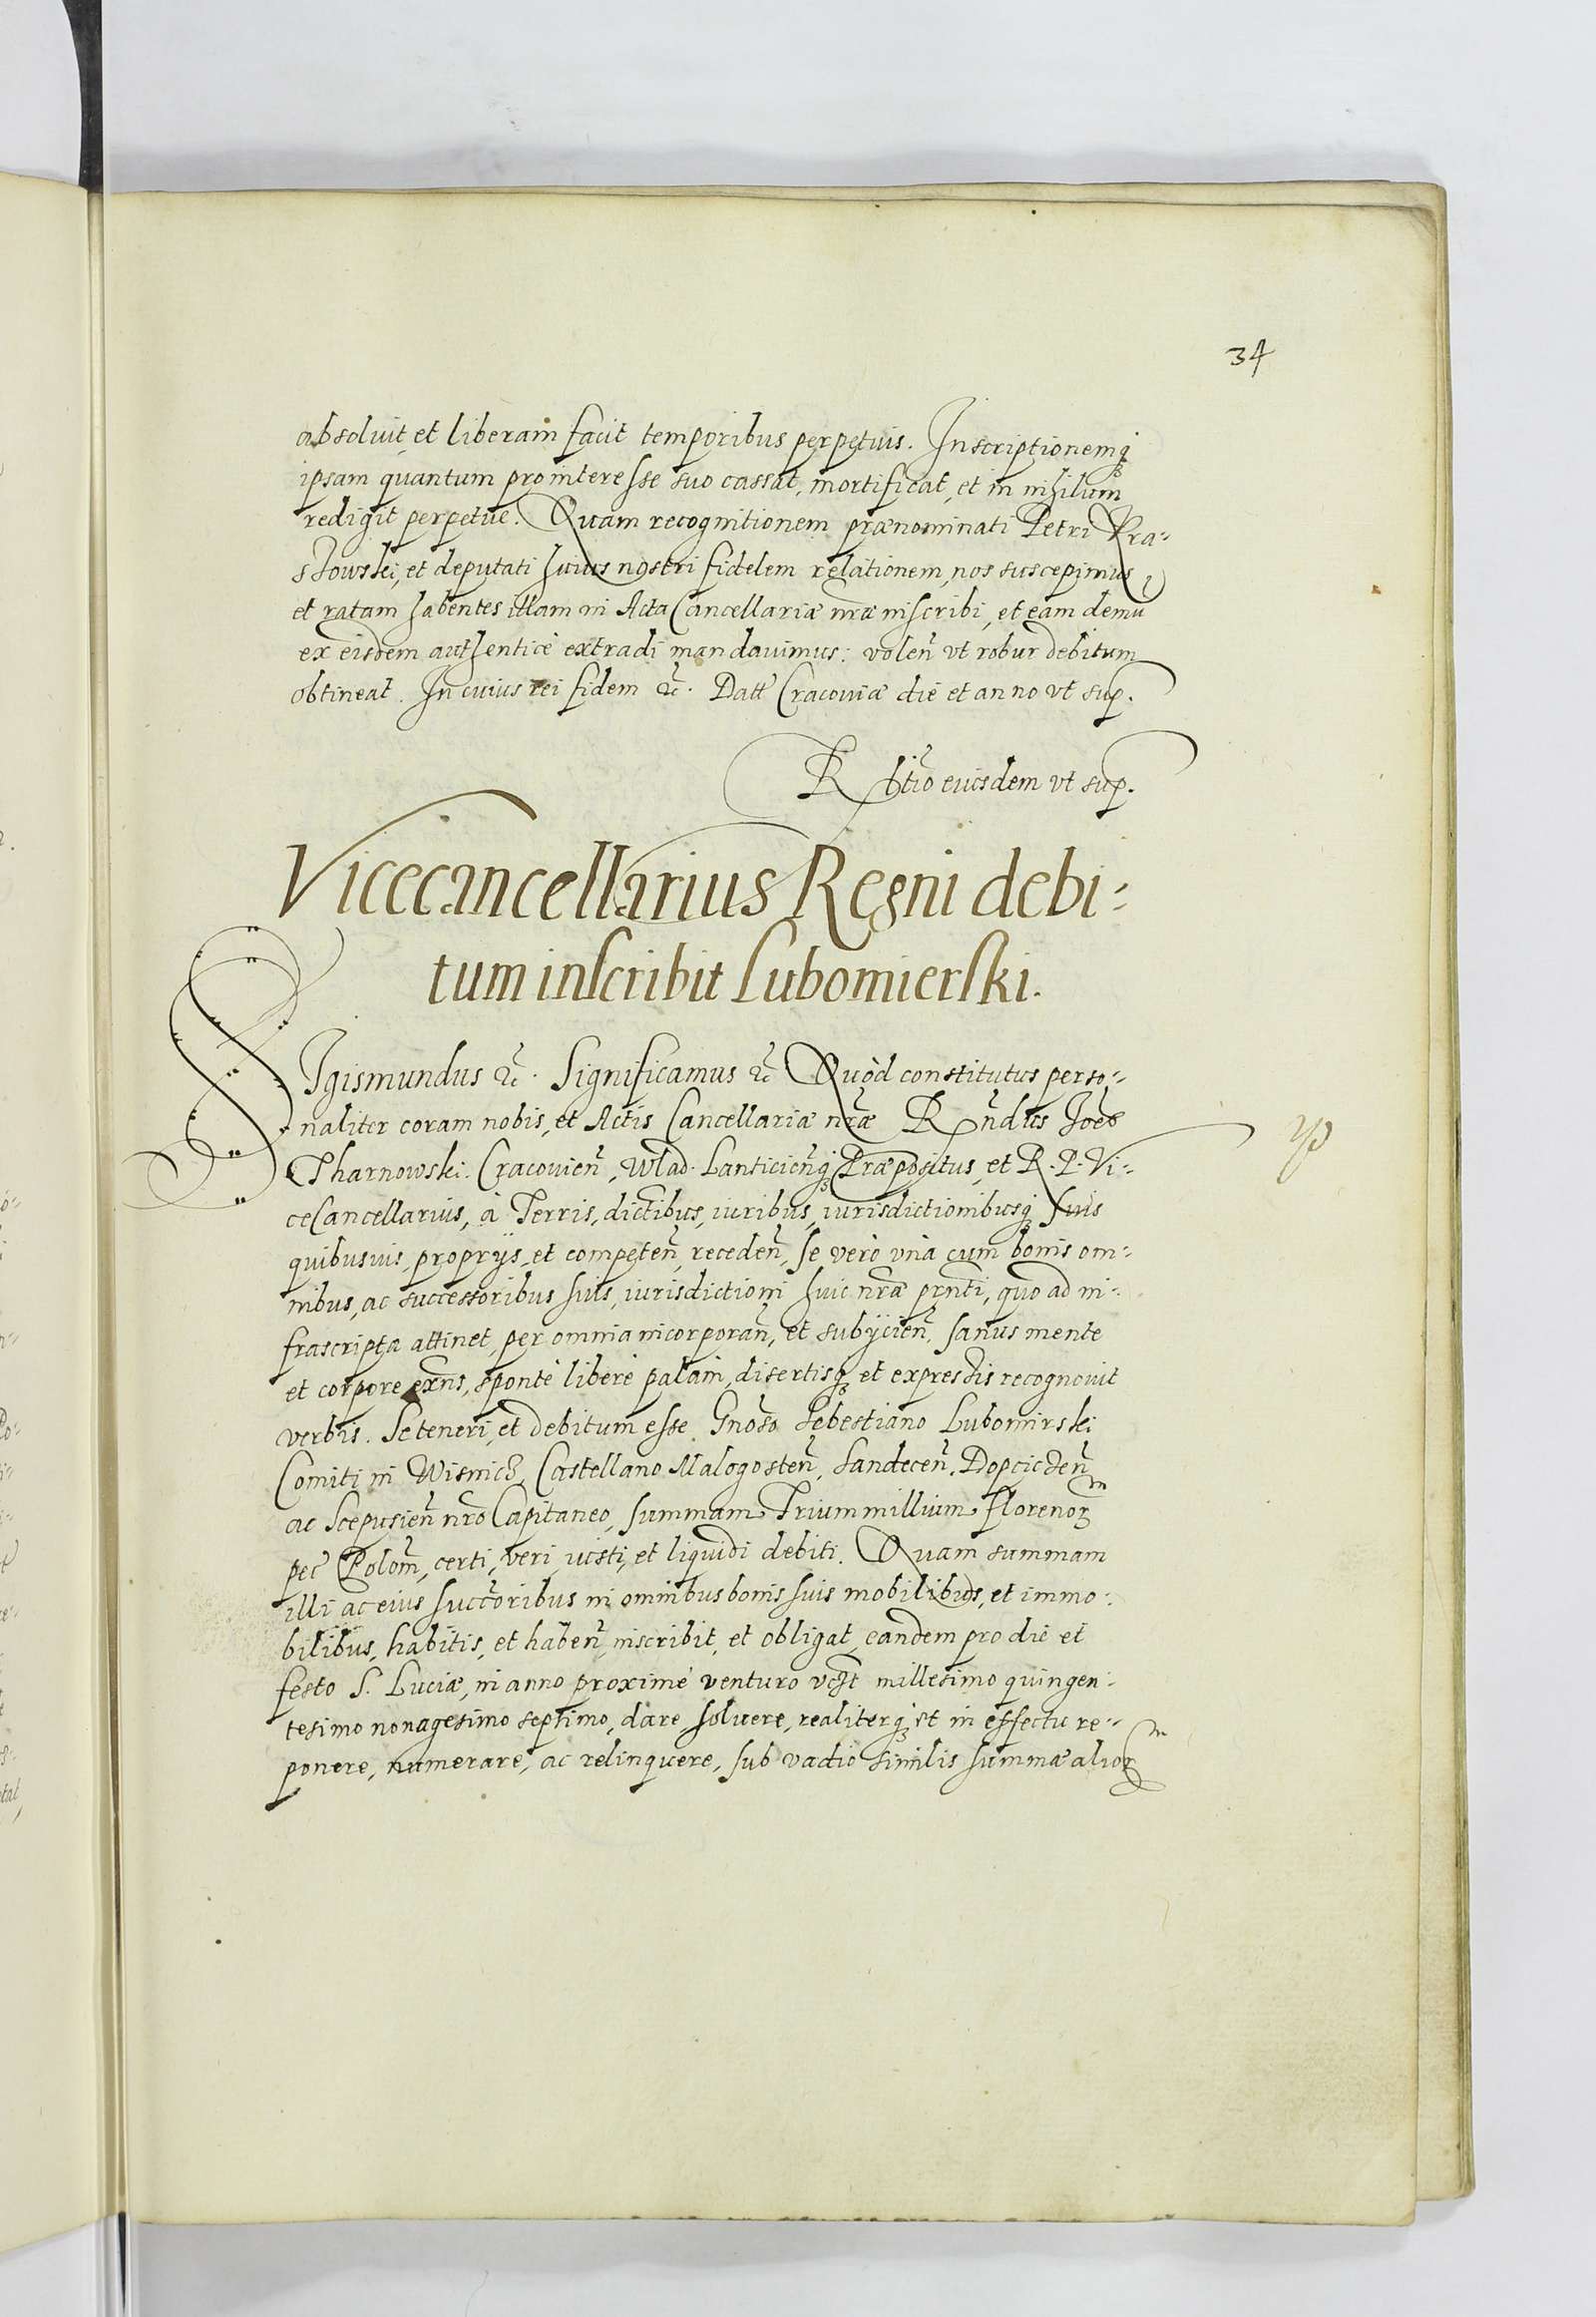 34
absoluit, et liberam facit temporibus perpetuis. Inscriptionemq́ꝫ
ipsam quantum pro interesse suo cassat, mortificat, et in nihilum
redigit perpetue. Quam recognitionem prænominati Petri Kra-
stowski, et deputati huius nostri fidelem relationem, nos suscepimus
et ratam habentes illam in Acta Cancellariæ nr̃æ inscribi, et eam demũ
ex eisdem authenticè extradi mandauimus: volen̄ vt robur debitum
obtineat. In cuius rei fidem &c̃. Datt̃ Cracouiæ die et anno vt sup.
R̃ltio eiusdem vt sup.
Vicecancellarius Regni debi-
tum inscribit Lubomierski.
SIgismundus &c̃. Significamus &c̃ Quòd constitutus perso-
naliter coram nobis, et Actis Cancellariæ nr̃æ Rñdus Joẽs
Tharnowski Cracouien̄, Wlad. Lanticien̄q́ꝫ Præpositus, et R. P. Vi-
ceCancellarius, à Terris, dictibus, iuribus, iurisdictionibusq́ꝫ suis
quibusuis, proprijs, et competen̄, receden̄, se verò vnà cum bonis om-
nibus, ac successoribus suis, iurisdictioni huic nr̃æ pñti, quo ad in-
frascripta attinet, per omnia incorporan̄, et subijcien̄, sanus mente
et corpore exñs, spontè liberè palàm, disertisq́ꝫ et expressis recognouit
verbis. Se teneri, et debitum esse Gnõso Sebestiano Lubomirski
Comiti in Wisnicz, Castellano Malogosten̄, Sandecen̄, Dopcicẽn̄
ac Scepusien̄ nr̃o Capitaneo, summam Trium millium Florenoꝝ
pec̃ Polon̄, certi, veri, iusti, et liquidi debiti. Quam summam
illi ac eius succ̃oribus in omnibus bonis suis mobilibus, et immo-
bilibus, habitis, et haben̄, inscribit, et obligat, eandem pro die et
festo S. Luciæ, in anno proximè venturo vcz̃t millesimo quingen-
tesimo nonagesimo septimo, dare, soluere, realiterq́ꝫ et in effectu re-
ponere, numerare, ac relinquere, sub vadio similis summæ alioꝝ